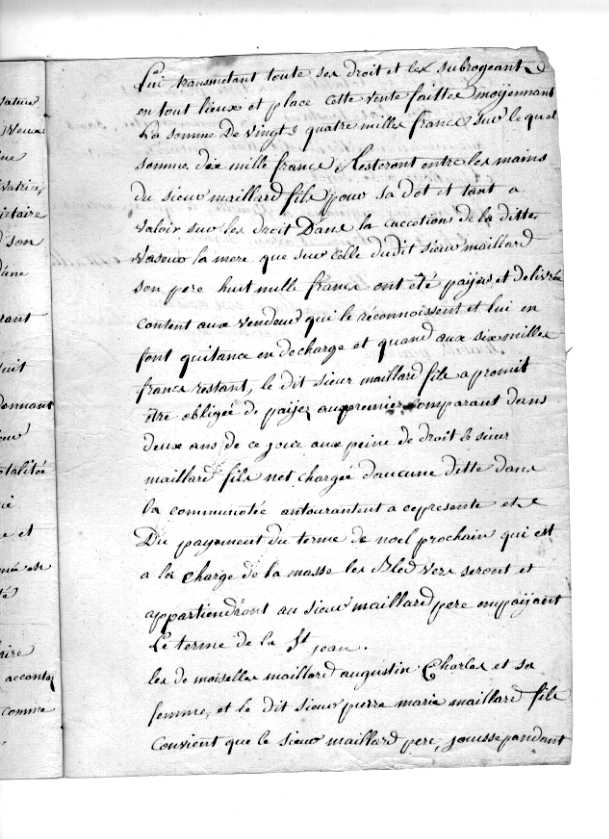 Lui transmetant toute ses droit et les subrogeant
en tout lieux et place cette vente faittes moyennant
La somme de vingts quatre milles francs sur le quel
somme dix mille francs Resteront entre les mains
du sieur maillard fils pour sa dot et tant a
valoir sur les droit Dans la de la ditte
vaseur la mere que sur celle dudit sieur maillard
son pere huit mille francs ont été payés et delivrée
content aux vendeur qui le réconnoissent et lui en
font quitance en decharge et quand aux six milles
francs restant, le dit sieur maillard fils a promit
être obligée de paijez au premier comparant dans
deux ans de ce jour aux peine de droit le sieur
maillard fils not chargée d'aucune dette dans
la communotée a cepresente et
Du payement du terme de noel prochain qui est
a la charge de la masse les Bled vers seront et
appartiendront au sieur maillard pere en payant
Le terme de la St jean.
les de moiselles maillard augustin Charles et sa
femme, et le dit sieur pierre marie maillard fils
convient que le sieur maillard pere, jouisse pandant
vatrice
ictaire
d'son
d'une
rant
donnant
totalitée
e et
accontez
comme